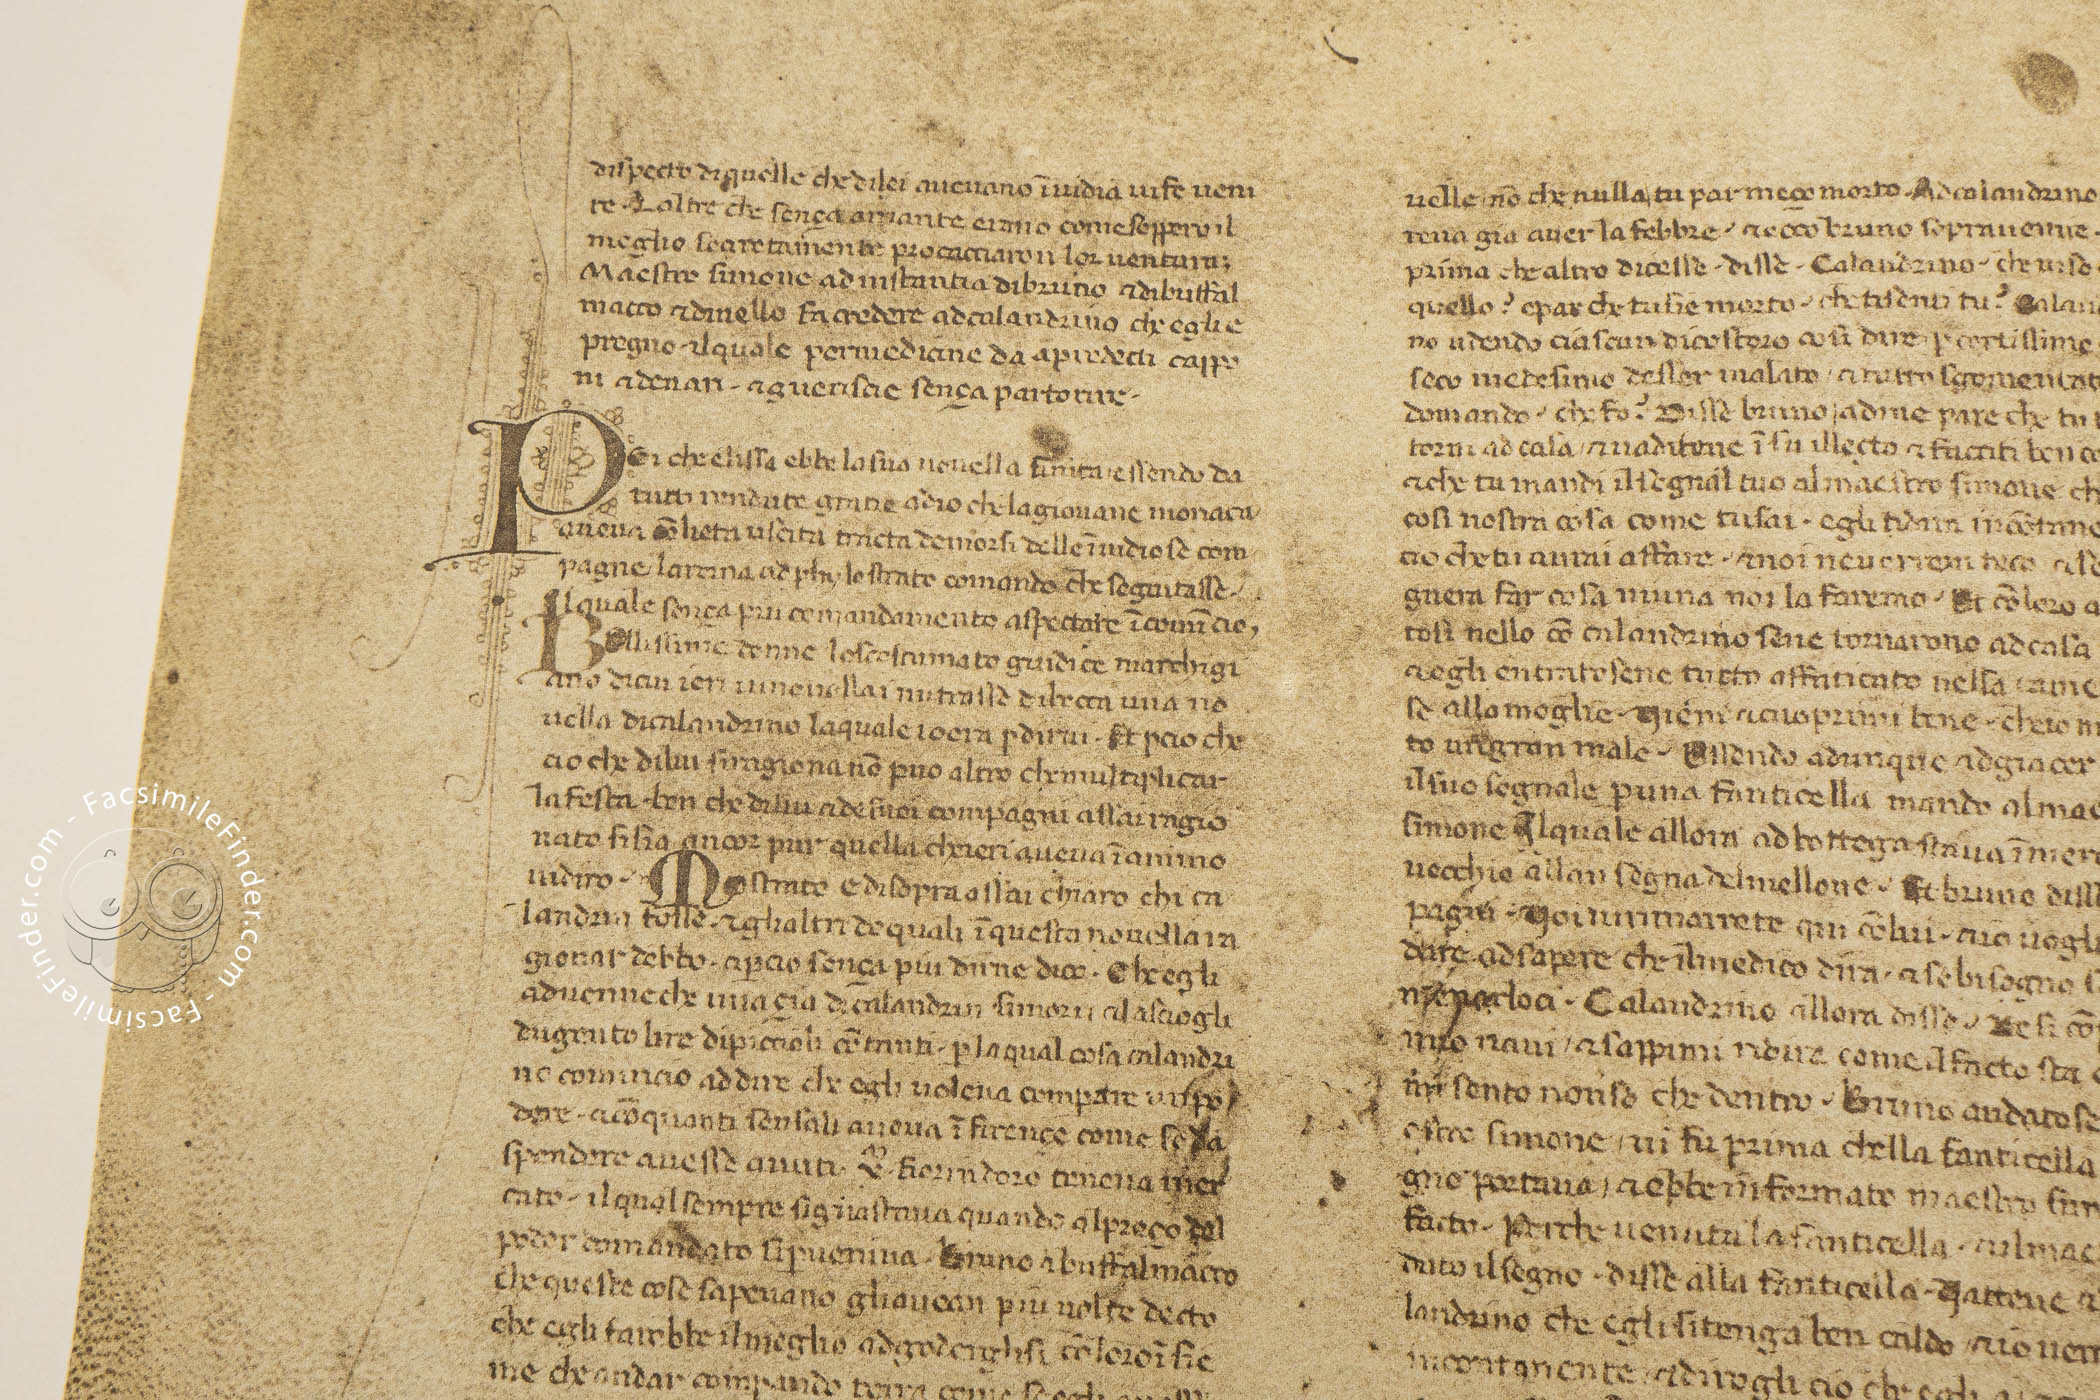 dispecto diquelle che dilei aueuano īuidia uife ueni
re. Laltre che sença amante erano come seppero il
meglio secretamente procacciaron lor uentura;
Maestro simone ad instantia dibruno ⁊ dibuffal
macco ⁊ dinello fa credere ad calandrino che egli e
pregno. ilquale per medicine da apredecti cappo
ni ⁊ denari. ⁊ guerisce sença partorire.
POi che elissa ebbe la sua nouella finita essendo da
tutti rendute gratie adio che lagiouane monaca
aueua cō lieta uscita tracta demorsi delle īuidiose com
pagne, la reina ad phylostrato comando che seguitasse.
Ilquale sença piu comandamento aspectare īcomīcio,
Bellissime donne loscostumato guidice marchigi
ano dicui ieri ui nouellai mi trasse di bocca una no
uella di calandrino laquale io era p dirui. Et pcio che
cio che dilui si ragiona nō puo altro che multiplicar
la festa. ben che dilui ⁊ de suoi compagni assai ragio
nato si sia ancor pur quella che ieri aueua īanimo
uidiro. Mostrato e disopra assai chiaro chi ca
landrin fosse. ⁊ gli altri de quali ī questa nouella ra
gionar debbo. ⁊ pcio sença piu dirne dico. Che egli
aduenne che una çia di calandrin si mori ⁊ lasciogli
dugento lire dipiccioli cōtanti. p laqual cosa calandri
no comincio ad dire che egli uoleua comperare un po
dere. ⁊ cō quanti sensali aueua ī firençe come se da
spendere auesse auuti. X. fiorin doro teneua mer
cato. il qual sempre si guastaua quando al preço del
poder domandato si pueniua. Bruno ⁊ buffalmacco
che queste cose sapeuano gli auean piu uolte decto
che egli farebbe il meglio ad godenglisi cō loro īsie
me che andar comperando terra come se egli auesse
uelle, nō che nulla, tu par meço morto. Ad calandrino
reua gia auer la febbre. ⁊ ecco bruno soprauenne.
prima che altro dicesse. disse. Calandrino. che uiso
quello? e par che tu sie morto. che tisenti tu? Calan
no udendo ciascun di costoro cosi dire p certissimo
seco medesimo desser malato, ⁊ tutto sgomentat
domando. che fo? Disse bruno, ad me pare che tu t
torni ad casa, ⁊ uaditene ī su illecto ⁊ facciti ben co
⁊ che tu mandi il segnal tuo al maestro simone. ch
cosi nostra cosa come tu sai. egli tidira incōtane
cio che tu aurai affare. ⁊ noi ne uerrem teco. ⁊ se
gnera far cosa niuna noi la faremo. Et cō loro a
tosi nello cō calandrino sene tornarono ad casa
⁊ egli entratosene tutto affaticato nella came
se alla moglie. Vieni ⁊ cuoprimi bene. che io m
to un gran male. Essendo adunque adgiacer
il suo segnale p una fanticella mando al mae
simone Ilquale allora ad bottega staua ī mer
uecchio alla 'nsegna del mellone. Et bruno diss
pagni. Voi ui rimarrete qui cō lui. ⁊ io uogli
dare ad sapere che il medico dira. ⁊ se bisogno s
menarloci. Calandrino allora disse. De si cō
mio uaui, ⁊ sappimi ridire come il facto sta
mi sento non so che dentro. Bruno andatose
estro simone, ui fu prima chella fanticella
gno portaua, ⁊ ebbe īformato maestro sim
facto. Perche uenuta la fanticella. ⁊ il mae
duto il segno. disse alla fanticella. Vattene ⁊
landrino che egli si tenga ben caldo, ⁊ io uer
incontanente, ⁊ dirogli cio che egl
FacsimileFinder.com - FacsimileFinder.com - FacsimileFinder.com